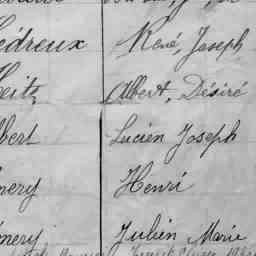 édreux René, Joseph
Heitz Albert, Désiré
bert Lucien Joseph
mery Henri
mery Julien Marie